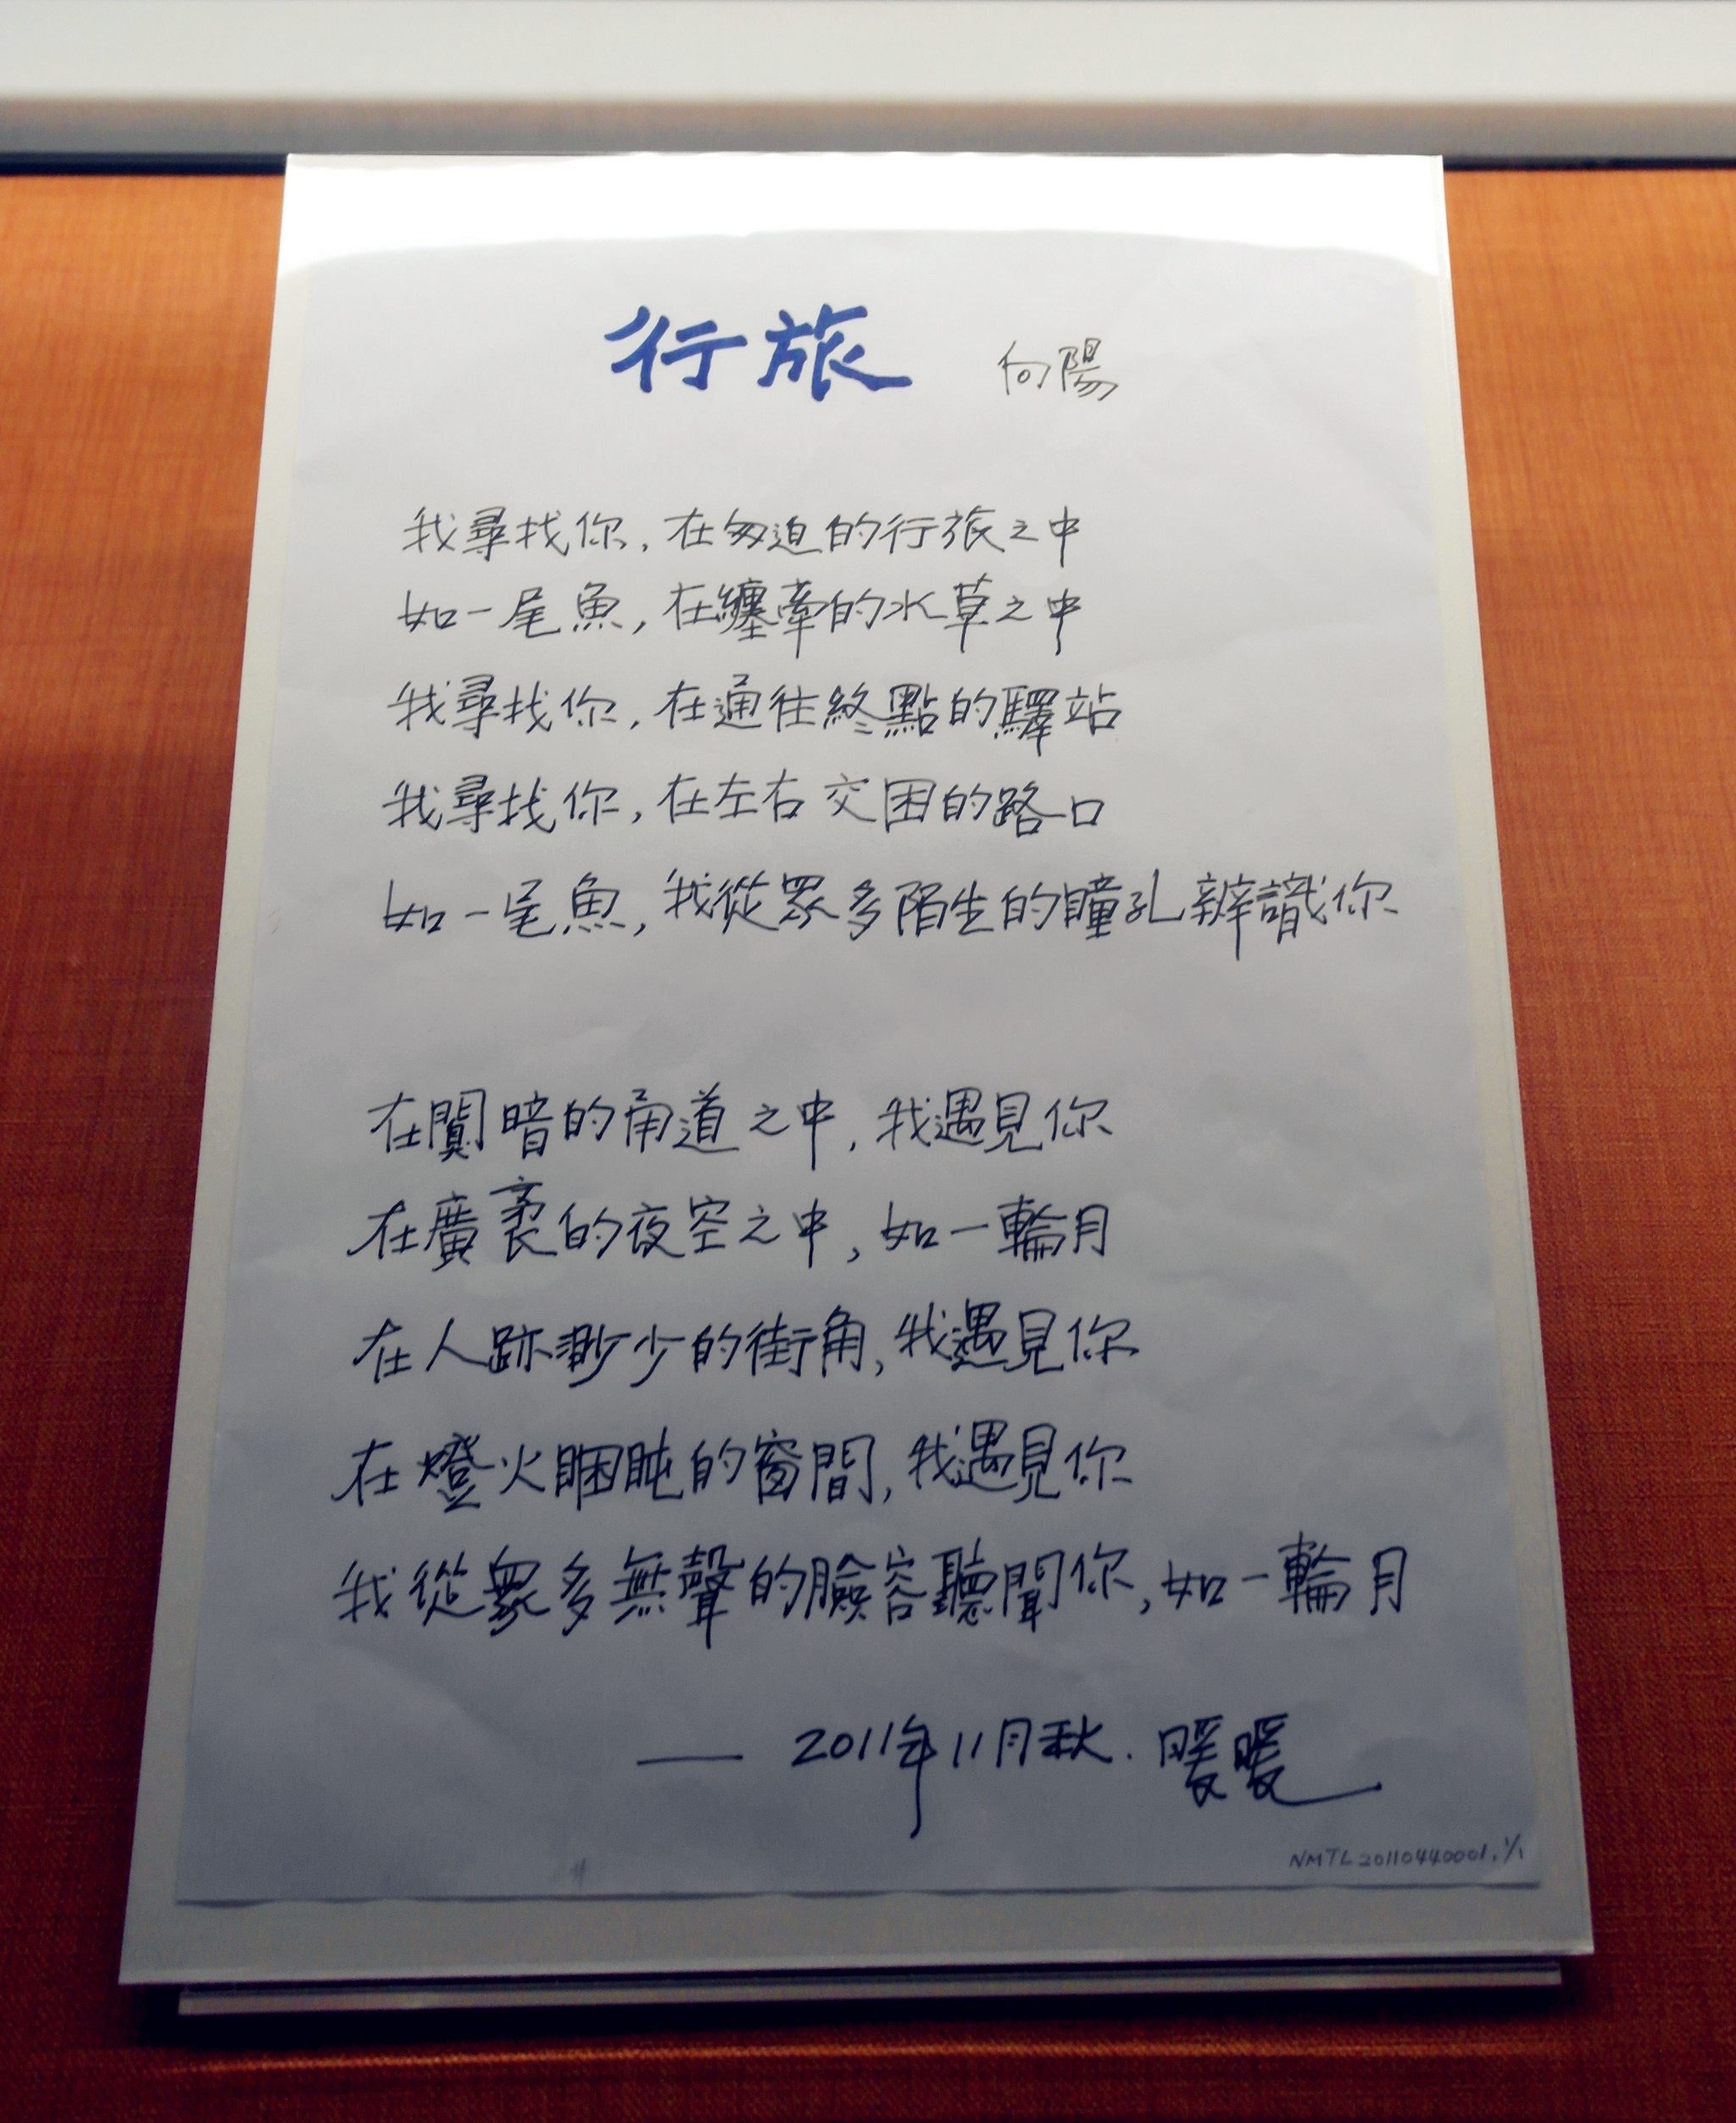 行旅 向陽
我尋找你，在匆迫的行旅之中
如一尾魚，在纏牽的水草之中
我尋找你，在通往終點的驛站
我尋找你，在左右交困的路口
如一尾魚，我從眾多陌生的瞳孔辨識你
在闃暗的甬道之中，我遇見你
在廣袤的夜空之中，如一輪月
在人跡渺少的街角，我遇見你
在燈火睏盹的窗間，我遇見你
我從眾多無聲的臉容聽聞你，如一輪月
—— 2011年11月秋．暖暖
NMTL20110440001.1/1